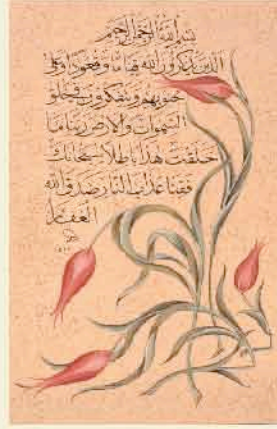 بسم الله الرحمن الرحيم
الذين يذكرون الله قياما وقعودا وعلى
جنوبهم ويتفكرون في خلق
السموات والارض ربنا ما
خلقت هذا باطلا سبحانك
فقنا عذاب النار صدق الله
العظيم